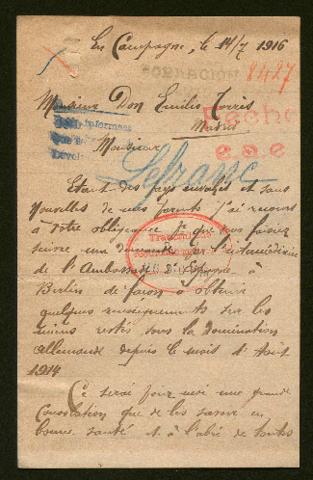 En Campagne, le 14/7 1916
8427
Monsieur Don Emilio Torris
Madrid
Fecha
Monsieur
Lefranc
Etant des pays envahis et sans
nouvelles de mes parents j'ai recours
à votre obligeance pr que vous fassiez
suivre une demande par l'intermédiaire
de l'Ambassade d'Espagne, à
Berlin de façon à obtenir
quelques renseignements sur les
miens restés sous la Domination
allemande depuis le mois d'Août
1914
Ce serai pour moi une grande
Consolation que de les savoir en
bonne santé et à l'abri de toutes